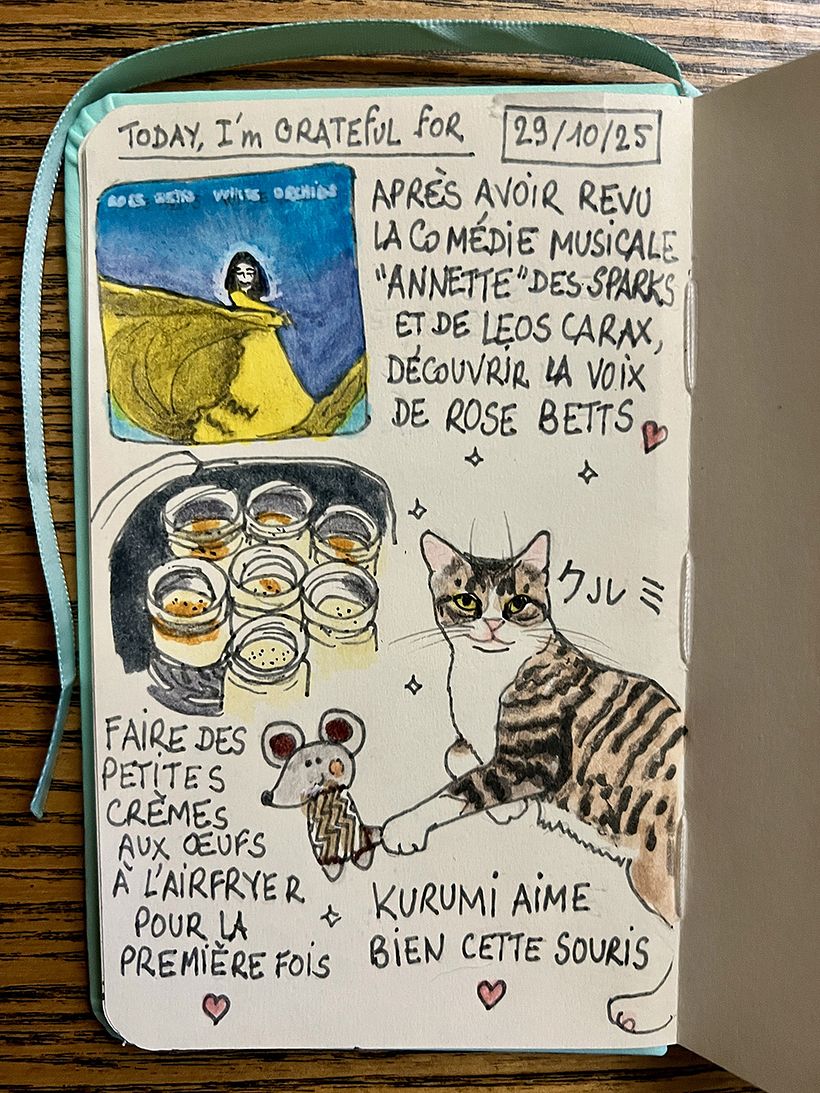 TODAY, I'm GRATEFUL FOR
29/10/25
ROSE BETTS WHITE ORCHIDS
APRÈS AVOIR REVU
LA COMÉDIE MUSICALE
"ANNETTE" DES SPARKS
ET DE LEOS CARAX,
DÉCOUVRIR LA VOIX
DE ROSE BETTS
クルミ
FAIRE DES
PETITES
CRÈMES
AUX ŒUFS
À L'AIRFRYER
POUR LA
PREMIÈRE FOIS
KURUMI AIME
BIEN CETTE SOURIS